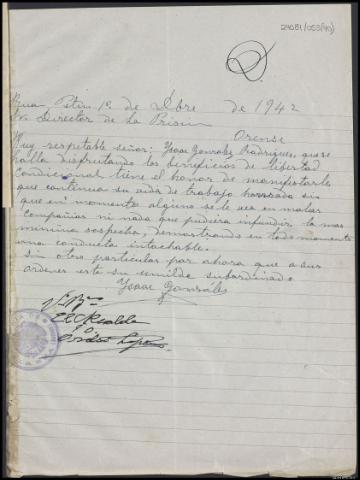 24081/053(40)
Petin 1º de Dbre de 1942
Sr Director de La Prision
Orense
Muy respetable señor: Ysaac Gonzalez Rodriguez, que se
halla disfrutando los beneficios de libertad
condicional tiene el honor de manifestarle
que continua su vida de trabajo honrado sin
que en momento alguno se le vea en malas
compañias ni nada que pudiera infundir la mas
minima sospecha, demostrando en todo momento
una conducta intachable.
Sin otro particular por ahora queda a sus
ordenes este su umilde subordinado
Ysaac Gonzalés
Vº Bno
El Alcalde